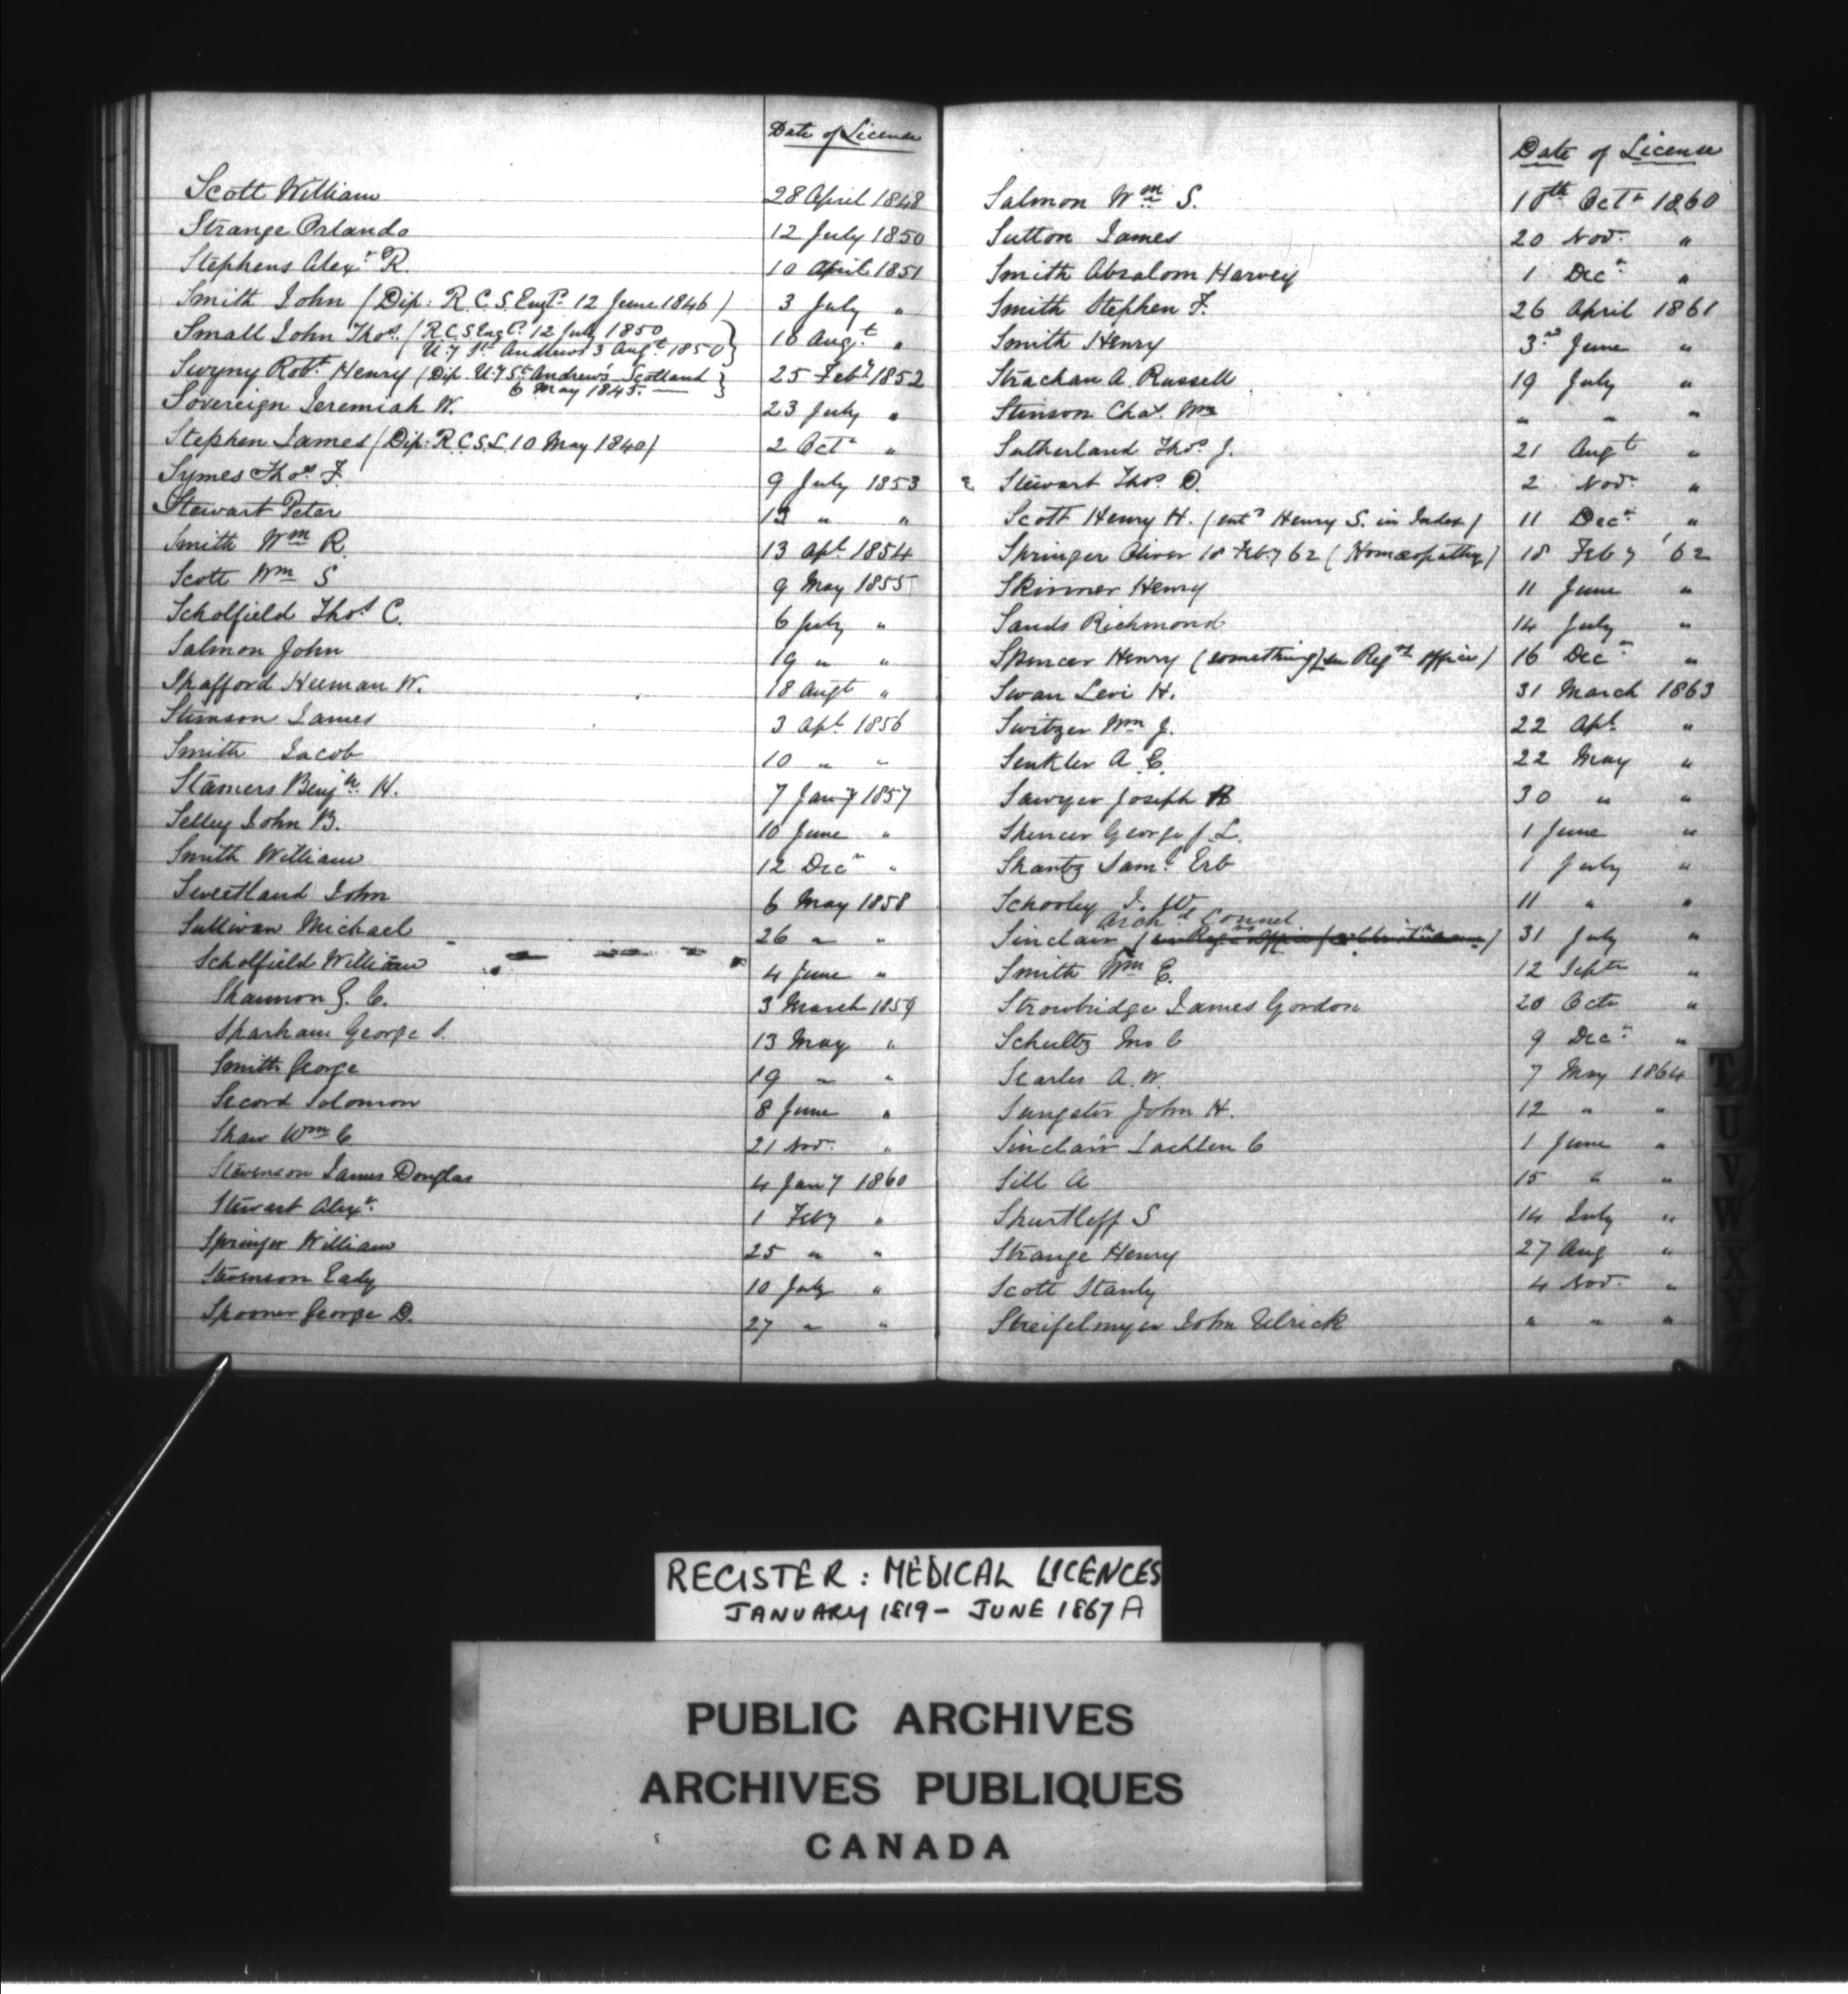 Date of License
Scott William 28 April 1848
Strange Orlando 12 July 1850
Stephens Alexr R. 10 April 1851
Smith John (Dip: R.C.S. Engd 12 June 1846) 3 July "
Small John Thos. (R.C.S Engd. 12 July 1850 16 Augt. "
U. of St. Andrews 3 Augt 1850)
Swyny Robt. Henry (Dip. U. of St Andrew's Scotland 25 Feby 1852
6 May 1845. —)
Sovereign Jeremiah W. 23 July "
Stephen James (Dip: R.C.S.L. 10 May 1840) 2 Octr "
Symes Thos. F. 9 July 1853
Stewart Peter 13 " "
Smith Wm R. 13 Apl. 1854
Scott Wm S 9 May 1855
Scholfield Thos C. 6 July "
Salmon John 19 " "
Spafford Heeman W. 18 Augt "
Stimson James 3 Apl. 1856
Smith Jacob 10 " "
Stamers Benjn. H. 7 Jany 1857
Selley John B. 10 June "
Smith William 12 Decr "
Sweetland John 6 May 1858
Sullivan Michael 26 " "
Scholfield William 4 June "
Shannon G. C. 3 March 1859
Sparham George S. 13 May "
Smith George 19 " "
Secord Solomon 8 June "
Shaw Wm C 21 Nov. "
Stevenson James Douglas 4 Jany 1860
Stewart Alexr. 1 Feby "
Springer William 25 " "
Stevenson Eady 10 July "
Spooner George D. 27 " "
Date of License
Salmon Wm S. 10th Octr 1860
Sutton James 20 Nov. "
Smith Absalom Harvey 1 Decr "
Smith Stephen F. 26 April 1861
Smith Henry 3rd June "
Strachan A. Russell 19 July "
Stinson Chas. Wm " " "
Sutherland Thos. J. 21 Augt "
Stewart Thos. D. 2 Nov. "
Scott Henry H. (entd Henry S. in Index) 11 Decr. "
Springer Oliver 18 Feby 62 (Homœopathy) 18 Feby '62
Skinner Henry 11 June "
Sands Richmond 14 July "
Spencer Henry (something) in Regrs office) 16 Decr "
Swan Levi H. 31 March 1863
Switzer Wm J. 22 Apl. "
Senkler A. E. 22 May "
Sawyer Joseph R 30 " "
Spencer George J. L. 1 June "
Shantz Saml. Erb 1 July "
Schooley J. W. 11 " "
Archd Connel
Sinclair 31 July "
Smith Wm E. 12 Septr "
Strowbridge James Gordon 20 Octr "
Schultz Jno C 9 Decr. "
Searles A. W. 7 May 1864
Sangster John H. 12 " "
Sinclair Lachlen C 1 June "
Sill A 15 " "
Shurtleff S 14 July "
Strange Henry 27 Aug "
Scott Stanly 4 Nov. "
Streifelmyer John Ulrick " " "
T
U
V
W
X
Y
Z
REGISTER: MEDICAL LICENCES
JANUARY 1819 - JUNE 1867 A
PUBLIC ARCHIVES
ARCHIVES PUBLIQUES
CANADA